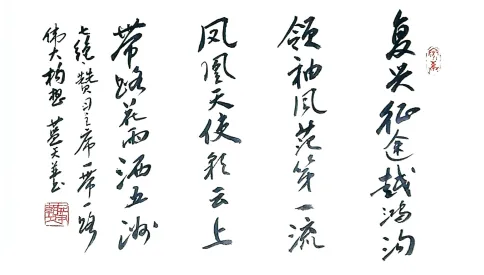 复兴征途越鸿沟
领袖风范第一流
凤凰天使彩云上
带路花雨洒五洲
七绝赞习主席一带一路
伟大构想 蓝天